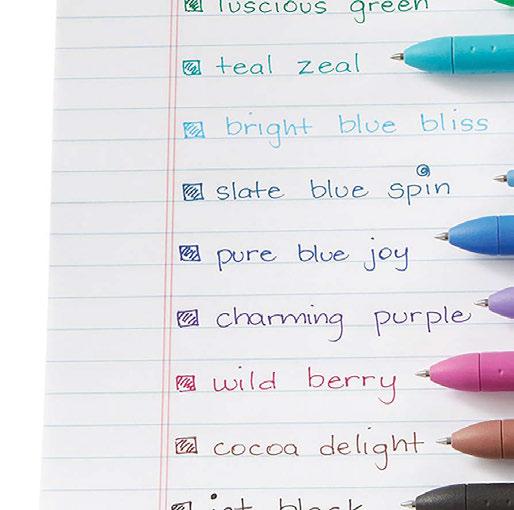 luscious green
teal zeal
bright blue bliss
slate blue spin
pure blue joy
charming purple
wild berry
cocoa delight
jet black